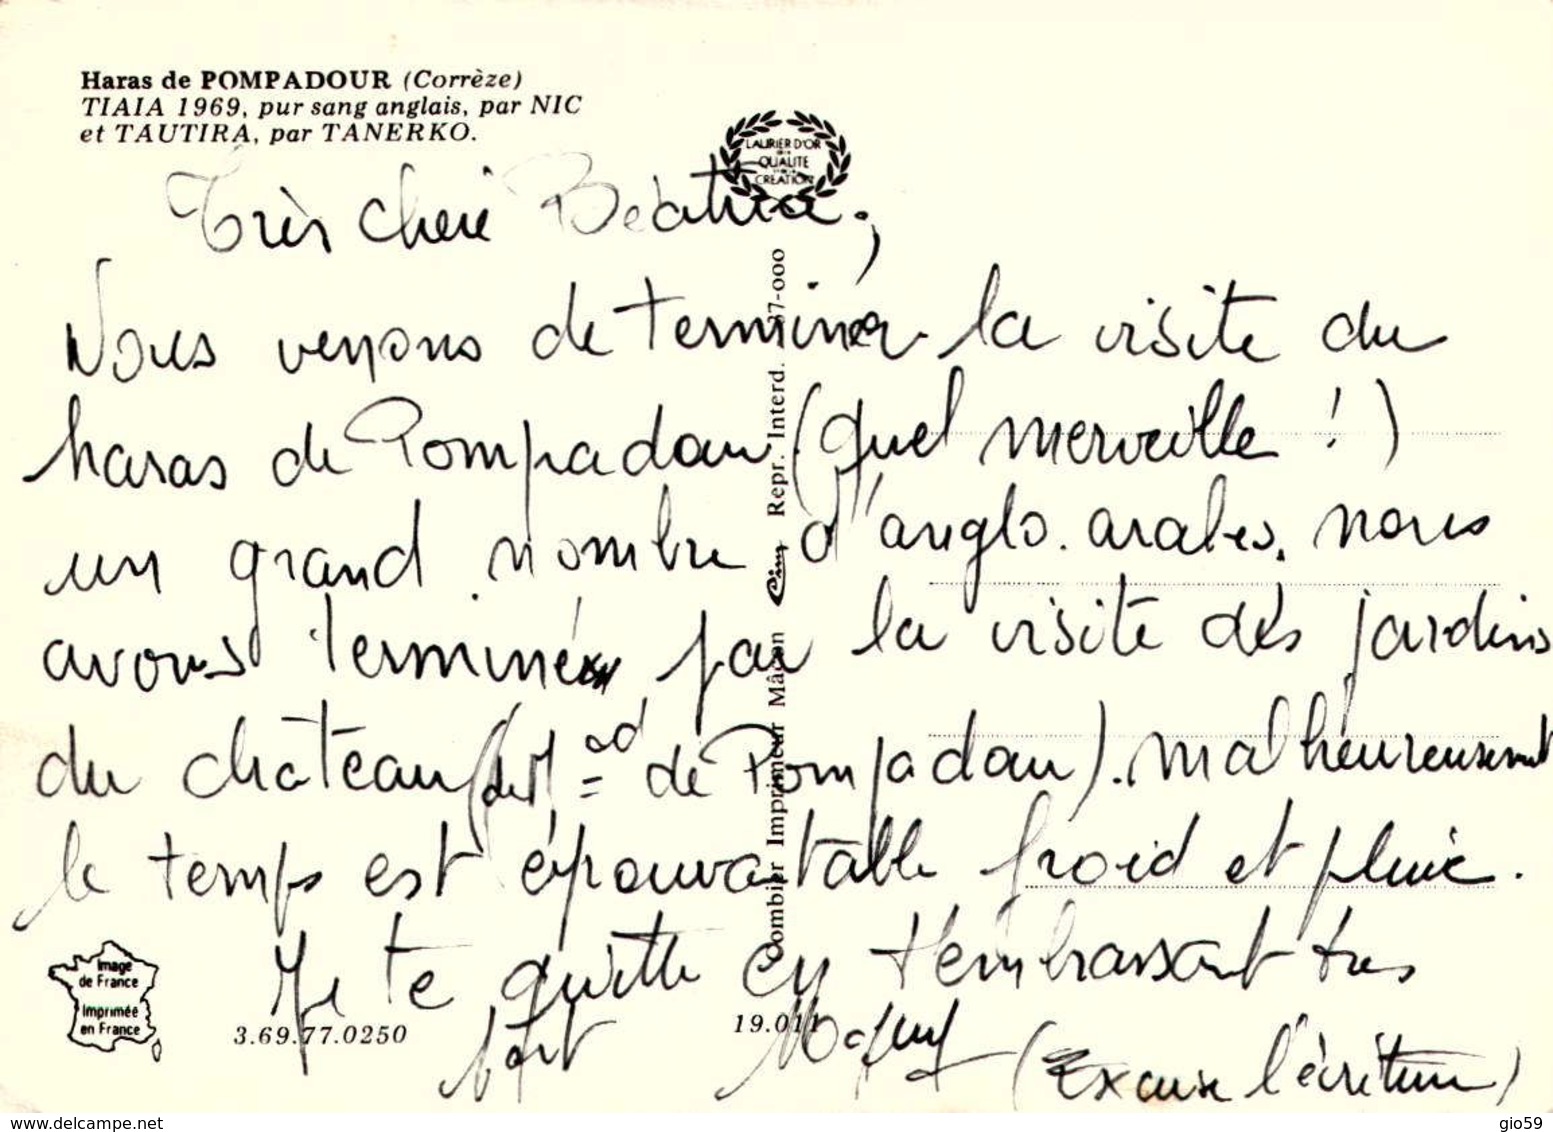 Haras de POMPADOUR (Corrèze)
TIAIA 1969, pur sang anglais, par NIC
et TAUTIRA, par TANERKO.
LAURIER D'OR
QUALITE
CREATION
Très cheré Béatrice,
Nous venons de terminer la visite du
haras de Pompadour (quel merveille !)
un grand nombre d'anglo-arabes. nous
avons terminé par la visite des jardins
du château (de M de Pompadour). malheureusement
le temps est épouvantable froid et pluie.
Je te quitte en t'embrassant très
fort
(Excuse l'écriture)
Combier Imprimeur Mâcon Cim Repr. Interd. 37-000
Image
de France
Imprimée
en France
3.69.77.0250
19.011
www.delcampe.net
gio59